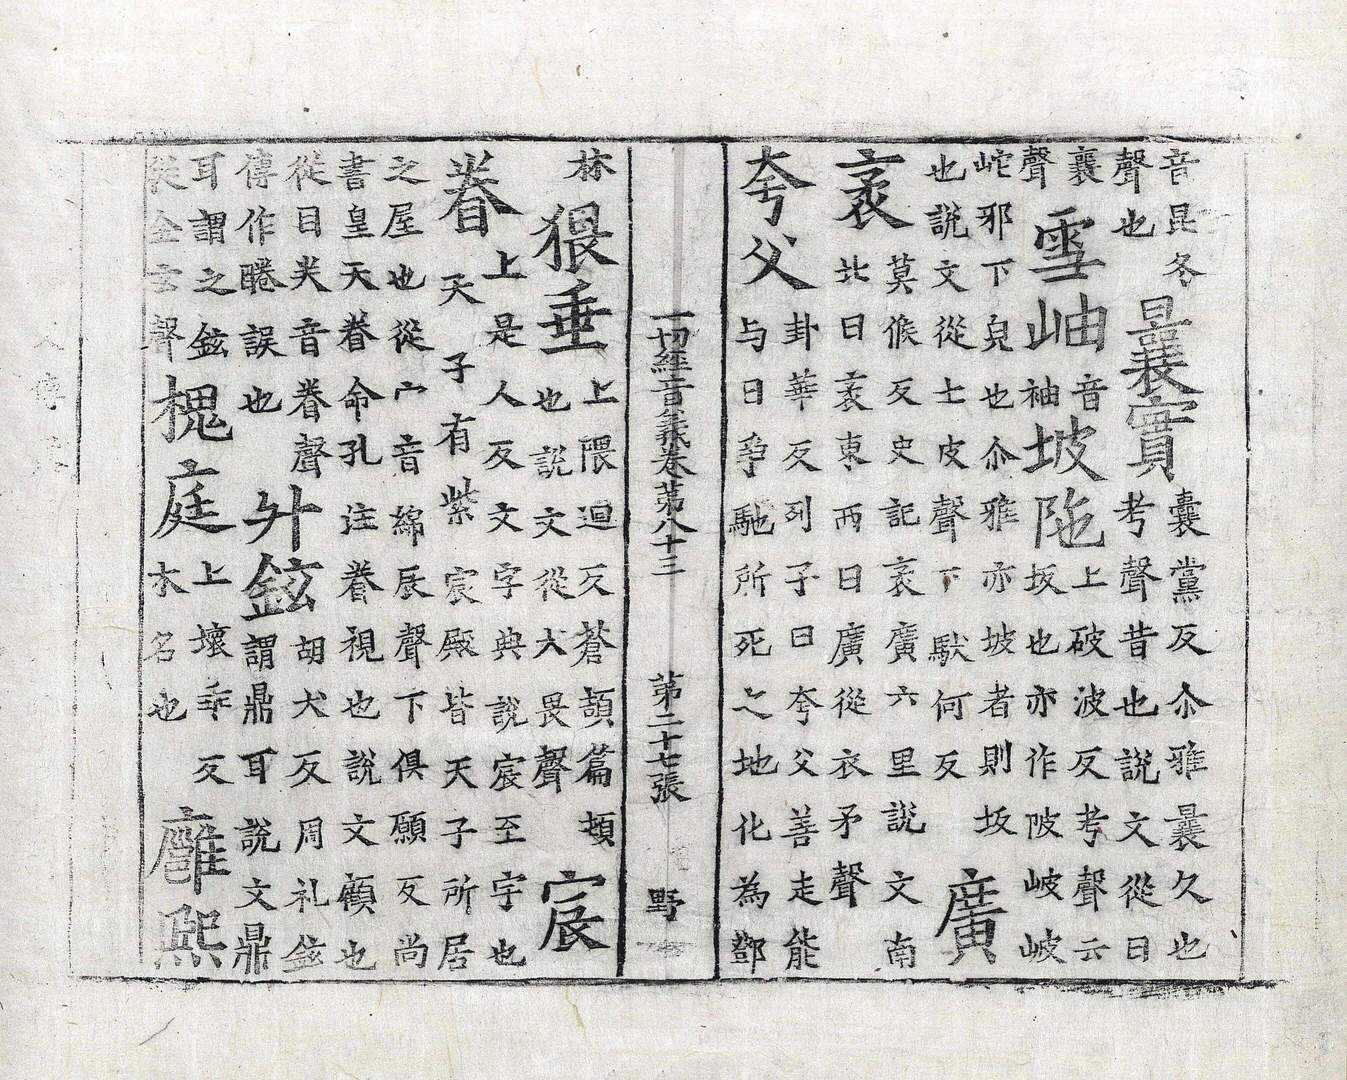 音昆冬
聲也
曩實
曩黨反尒雅曩久也
考聲昔也說文從日
襄
聲
雪岫
音
袖
坡陁
上破波反考聲云
坂也亦作陂岥岥
岮邪下皃也尒雅亦坡者則坂
也說文從土皮聲下馱何反
廣
袤
莫候反史記袤廣六里說文南
北曰袤東西曰廣從衣矛聲
夸父
卦華反列子曰夸父善走能
与日爭馳所死之地化為鄧
一切經音義卷第八十三 第二十七張 野
林
猥垂
上隈迴反蒼頡篇頓
也說文從犬畏聲
宸
眷
上是人反文字典說宸至字也
天子有紫宸殿皆天子所居
之屋也從宀音綿辰聲下俱願反尚
書皇天眷命孔注眷視也說文顧也
從目关音眷聲
傳作睠誤也
外鉉
胡犬反周礼鉉
謂鼎耳說文鼎
耳謂之鉉
從金玄聲
槐庭
上壞乖反
木名也
廱熙